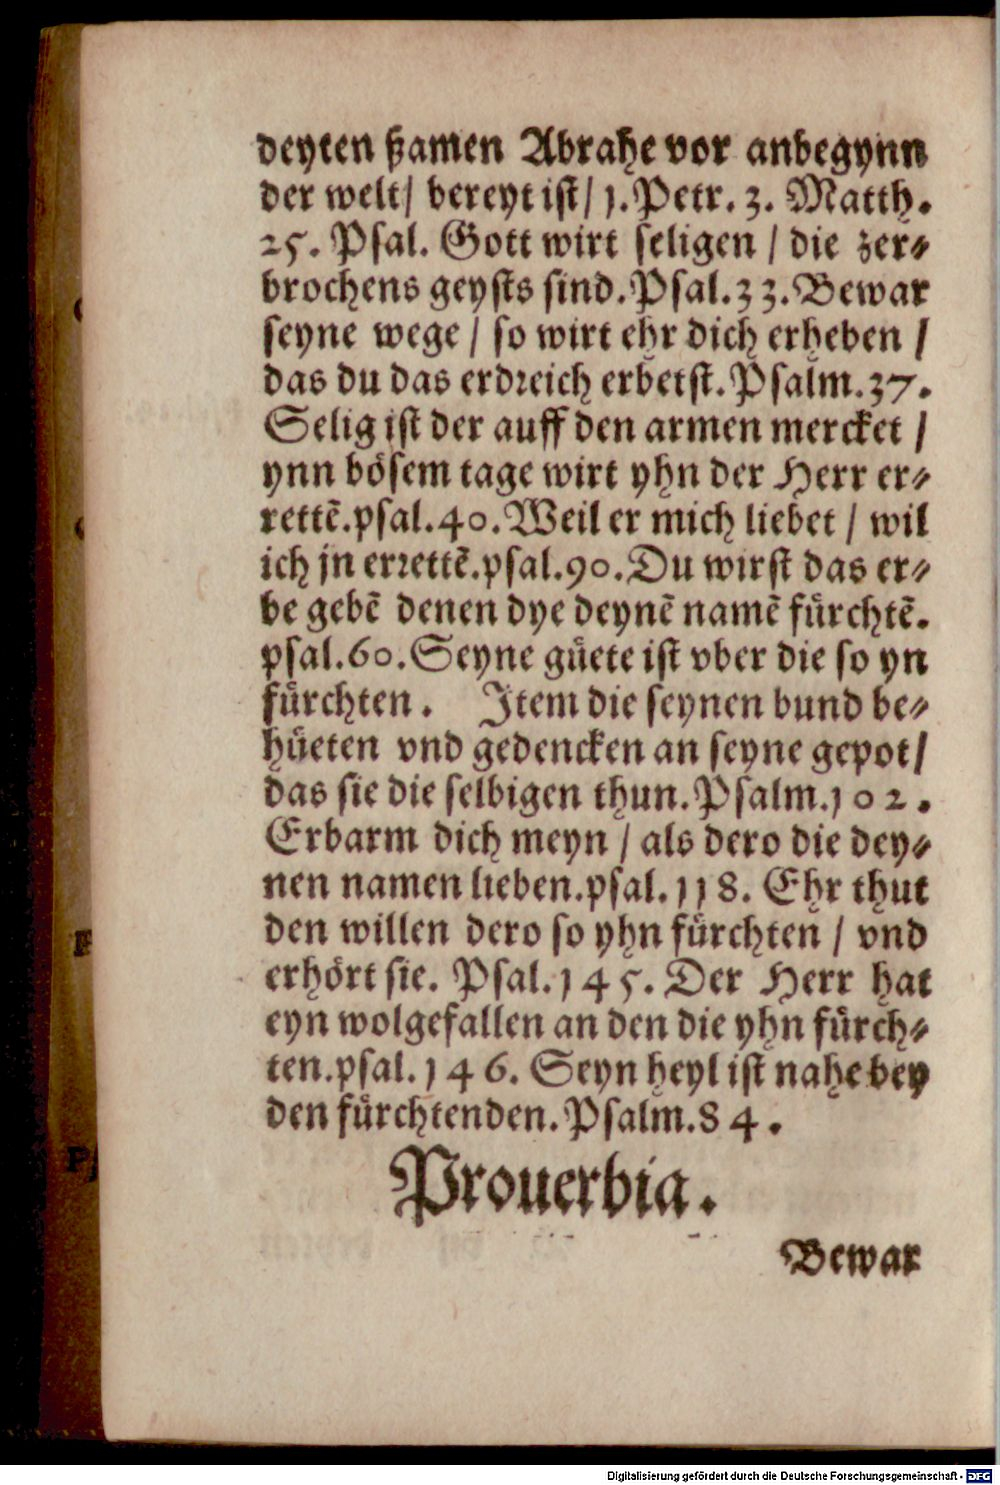 deyten ßamen Abrahe vor anbegynn
der welt/ bereyt ist/ 1.Petr. 3. Matth.
25. Psal. Gott wirt seligen / die zer⸗
brochens geysts sind.Psal.33.Bewar
seyne wege / so wirt ehr dich erheben /
das du das erdreich erbetst.Psalm.37.
Selig ist der auff den armen mercket /
ynn bösem tage wirt yhn der Herr er⸗
rettē.psal.40.Weil er mich liebet / wil
ich jn errettē.psal.90.Du wirst das er⸗
be gebē denen dye deynē namē fürchtē.
psal.60.Seyne güete ist vber die so yn
fürchten. Item die seynen bund be⸗
hüeten vnd gedencken an seyne gepot/
das sie die selbigen thun.Psalm.102.
Erbarm dich meyn / als dero die dey⸗
nen namen lieben.psal.118. Ehr thut
den willen dero so yhn fürchten / vnd
erhört sie. Psal.145. Der Herr hat
eyn wolgefallen an den die yhn fürch⸗
ten.psal.146. Seyn heyl ist nahe bey
den fürchtenden.Psalm.84.
Prouerbia.
Bewar
Digitalisierung gefördert durch die Deutsche Forschungsgemeinschaft - DFG